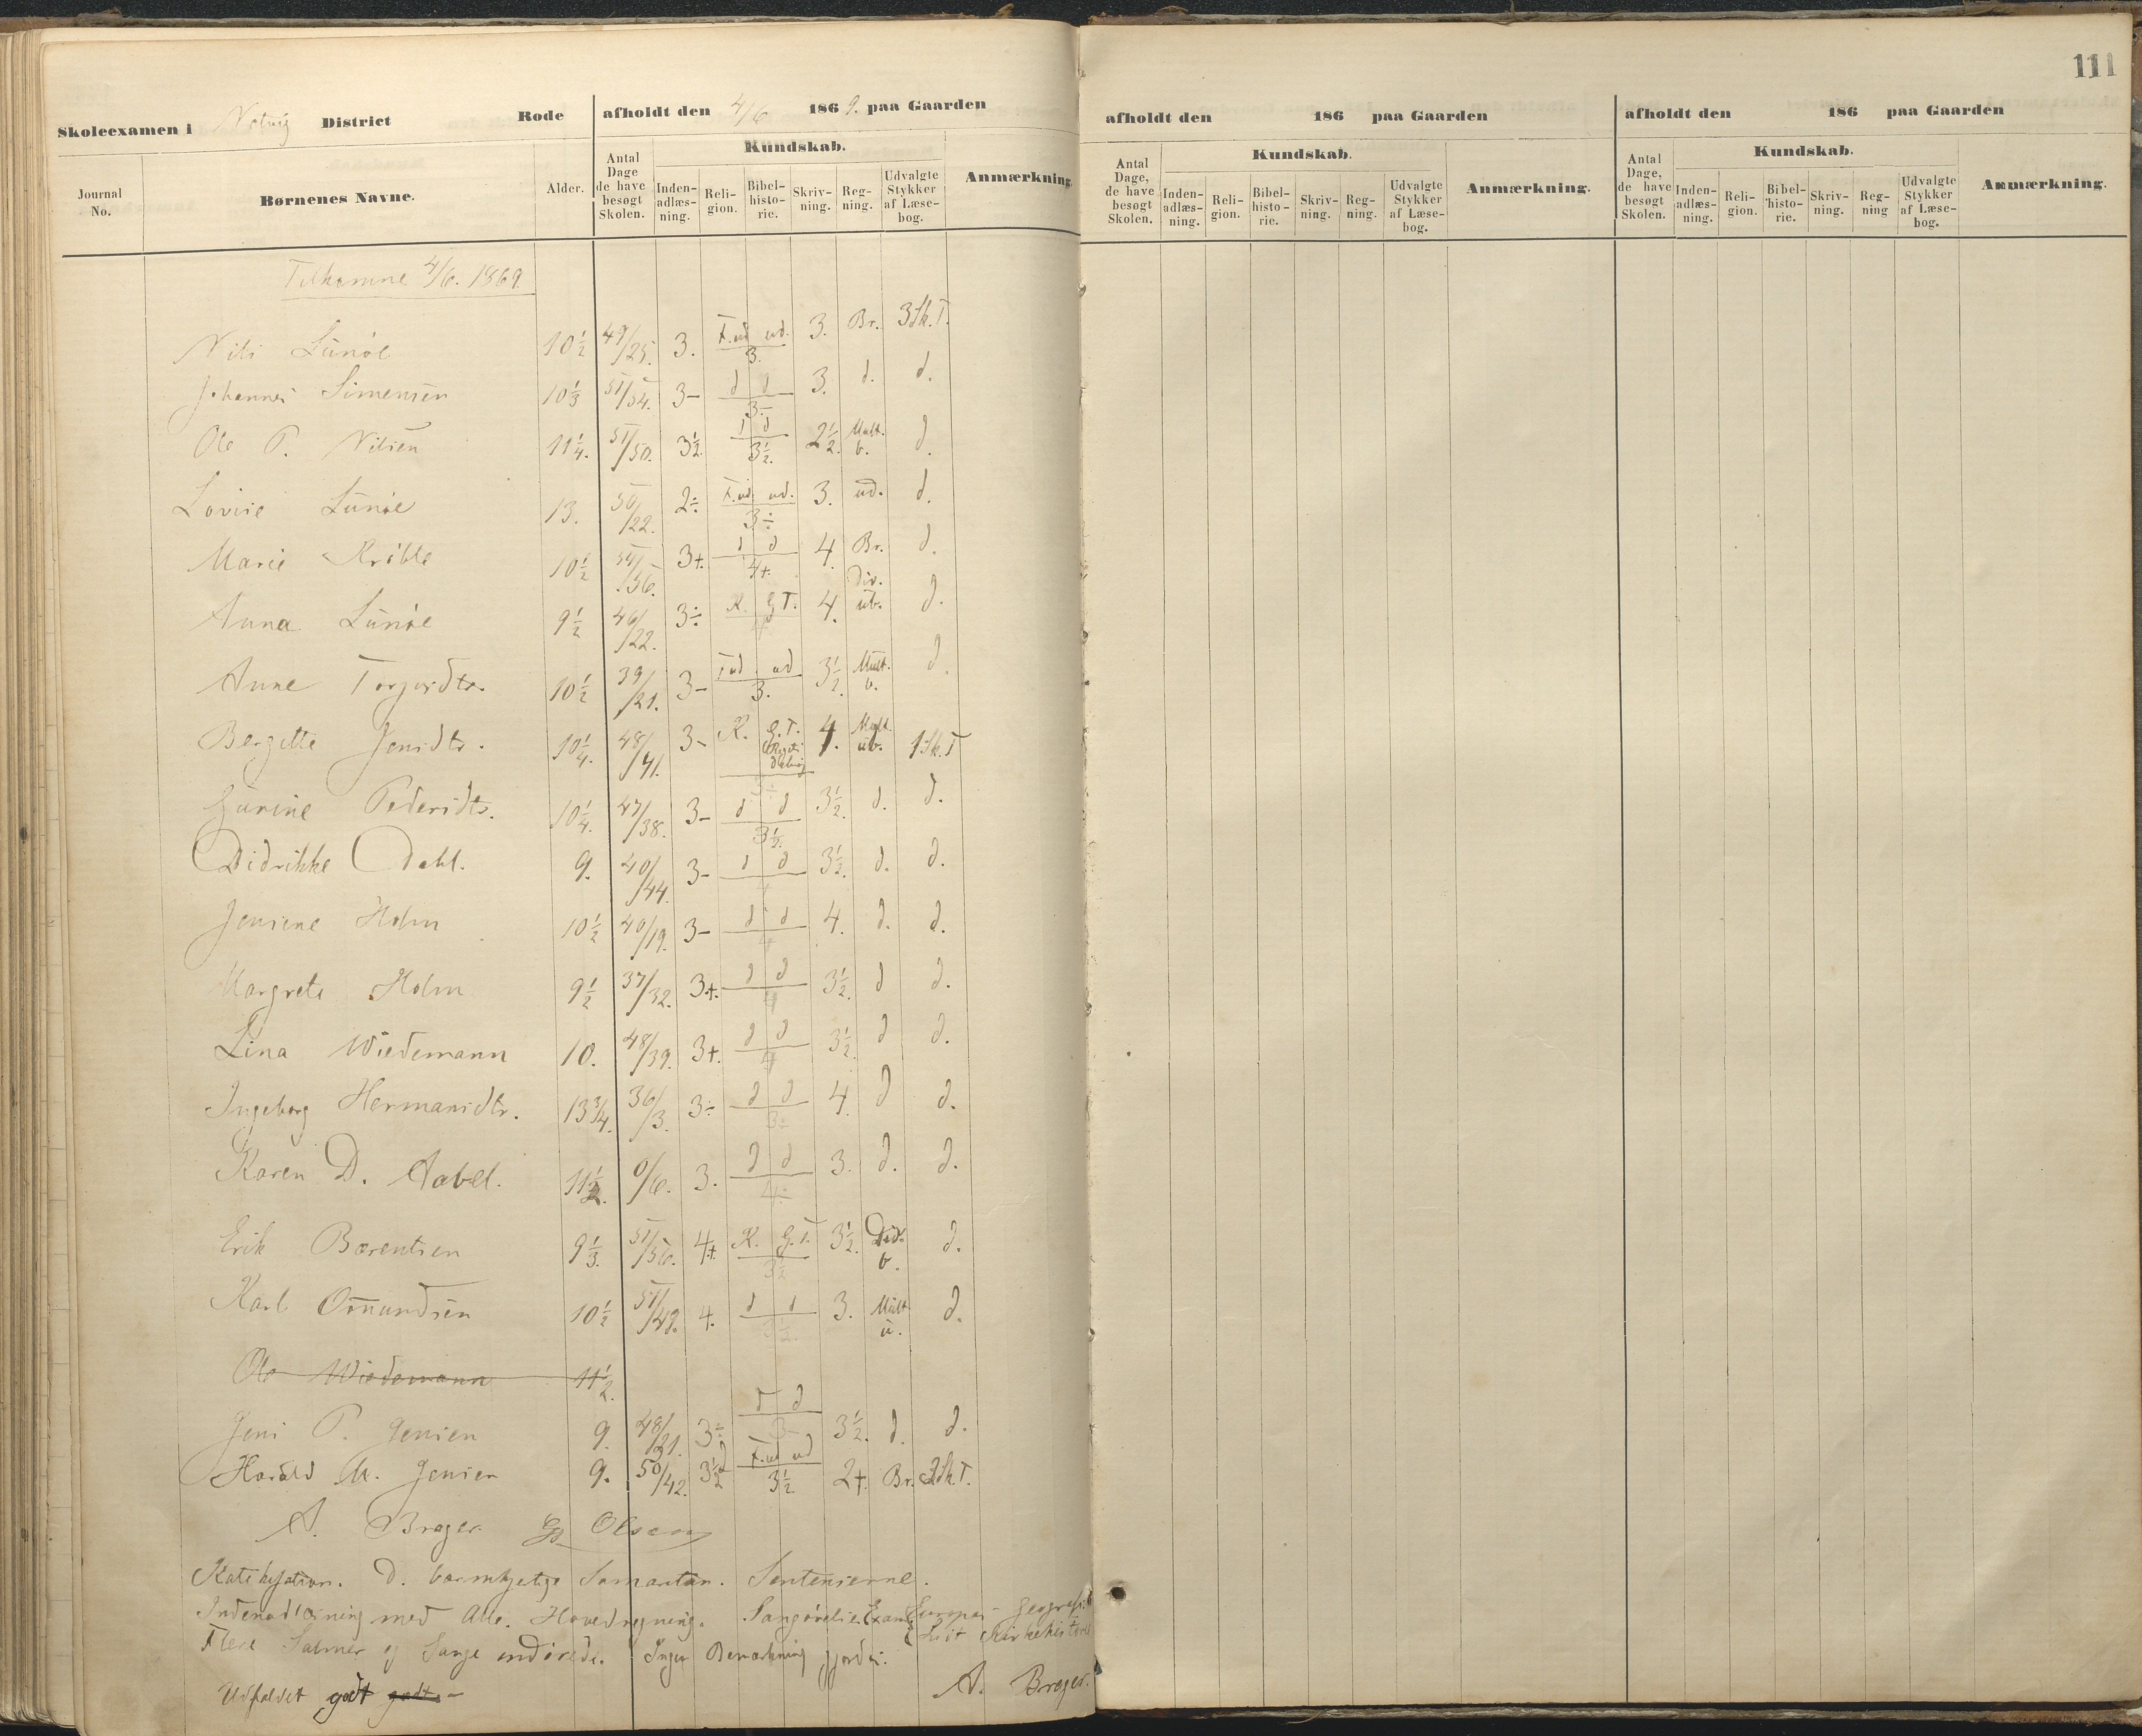 111
Skoleexamen i District Rode afholdt den 4/6 1869. paa Gaarden
Journal No. Børnenes Navne. Alder. Antal Dage de have besøgt Skolen. Kundskab. Inden-adlæs-ning. Reli-gion. Bibel-histo-rie. Skriv-ning. Reg-ning. Udvalgte Stykker af Læse-bog. Anmærkning.
Tilkomne 4/6. 1869
Nils Lunøe 10½ 49/25. 3. F.ud ud. 3. 3. Br. 3 Sk. T.
Johannes Simensen 10⅓ 51/54. 3- d d 3- 3. d. d.
Ole P. Nilsen 11¼. 51/50. 3½ d d 3½. 2½. Mult. b. d.
Lovise Lunøe 13. 50/22. 2÷ F.ud ud. 3÷ 3. ud. d.
Marie Krøble 10½ 54/56. 3+. d d 4+. 4. Br. d.
Anna Lunøe 9½ 46/22. 3÷ K. G T. 4 4. Div. ub. d.
Anne Torjusdtr. 10½ 39/21. 3- F ud ud 3. 3½. Mult. b. d.
Bergitte Jensdtr. 10¼. 48/41. 3- K. G. T. 4. Mult. ub. 1 Sk. T
Gunine Pedersdtr. 10¼. 47/38. 3- d d 3½. 3½. d. d.
Didrikke Dahl. 9. 40/44. 3- d d 4 3½. d. d.
Jensine Holm 10½ 40/19. 3- d d 4 4. d. d.
Margrete Holm 9½ 37/32. 3+. d d 4 3½. d d.
Lina Wiedemann 10. 48/39. 3+. d d 4 3½. d d.
Ingeborg Hermansdtr. 13¾. 36/3. 3÷ d d 3÷ 4. d d.
Karen D. Aabel. 11½. 0/6. 3. d d 4÷ 3. d. d.
Erik Bærentsen 9⅓. 51/56. 4+. K. G. T. 3½ 3½. Div. b. d.
Karl Osmundsen 10½ 51/49. 4. d d 3½. 3. Mult u. d.
Ole Wiedemann 11½.
Jens P. Jensen 9. 48/21. 3÷ d d 3- 3½. d. d.
Harald M. Jensen 9. 50/42. 3½ F.ud ud 3½ 2+. Br. 2 Sk. T.
A. Brager. Olsen
Katekisation. D. barmhjetige Samaritan. Sentenserne.
Indenadlæsning med Alle. Hovedregning. Sangøvelse. Exam: Europas Geografi
Lidt Kirkehistorie
Flere Salmer og Sange indøvede. Ingen Bemærkning gjordes.
Udfaldet godt godt. –
A. Brager.
afholdt den 186 paa Gaarden
Antal Dage, de have besøgt Skolen. Kundskab. Inden-adlæs-ning. Reli-gion. Bibel-histo-rie. Skriv-ning. Reg-ning. Udvalgte Stykker af Læse-bog. Anmærkning.
afholdt den 186 paa Gaarden
Antal Dage, de have besøgt Skolen. Kundskab. Inden-adlæs-ning. Reli-gion. Bibel-histo-rie. Skriv-ning. Reg-ning Udvalgte Stykker af Læse-bog. Anmærkning.